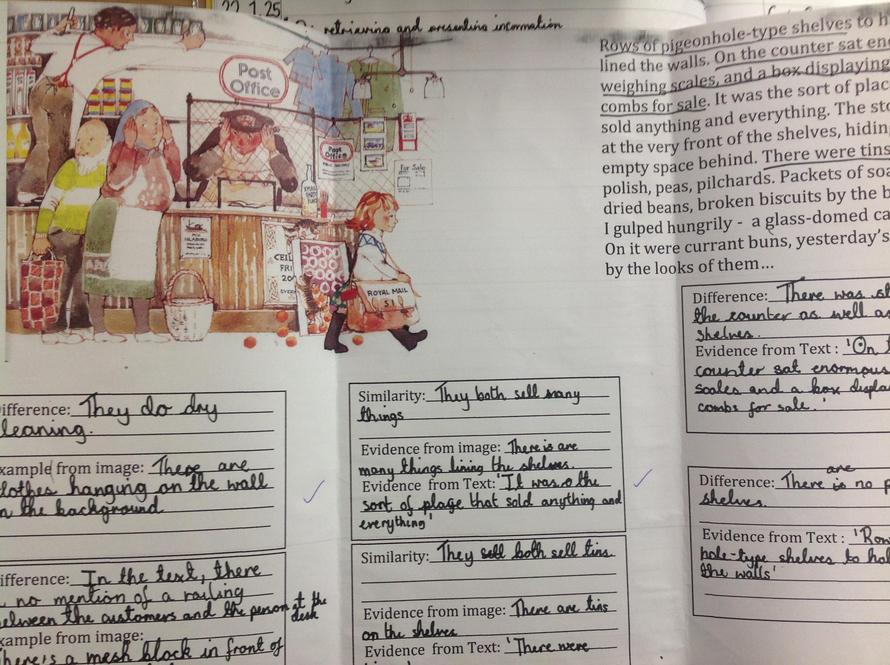 22.1.25.
retrieving and presenting information
Post
Office
Post
Office
for Sale
ROYAL MAIL
Rows of pigeonhole-type shelves to h
lined the walls. On the counter sat en
weighing scales, and a box displaying
combs for sale. It was the sort of plac
sold anything and everything. The sto
at the very front of the shelves, hidin
empty space behind. There were tins
polish, peas, pilchards. Packets of soa
dried beans, broken biscuits by the b
I gulped hungrily - a glass-domed ca
On it were currant buns, yesterday's
by the looks of them...
ifference: They do dry
leaning.
xample from image: There are
lothes hanging on the wall
n the background
ifference: In the text, there
no mention of a railing
between the customers and the person at the
desk
xample from image:
here's a mesh block in front of
Similarity: They both sell many
things
Evidence from image: There is are
many things lining the shelves.
Evidence from Text: 'It was the
sort of place that sold anything and
everything'
Similarity: They sell both sell tins
Evidence from image: There are tins
on the shelves
Evidence from Text: 'There were
Difference: There was st
the counter as well as
shelves.
Evidence from Text : 'On t
counter sat enormous
scales and a box displa
combs for sale.'
Difference: There is are no p
shelves.
Evidence from Text : 'Row
hole-type shelves to hol
the walls'